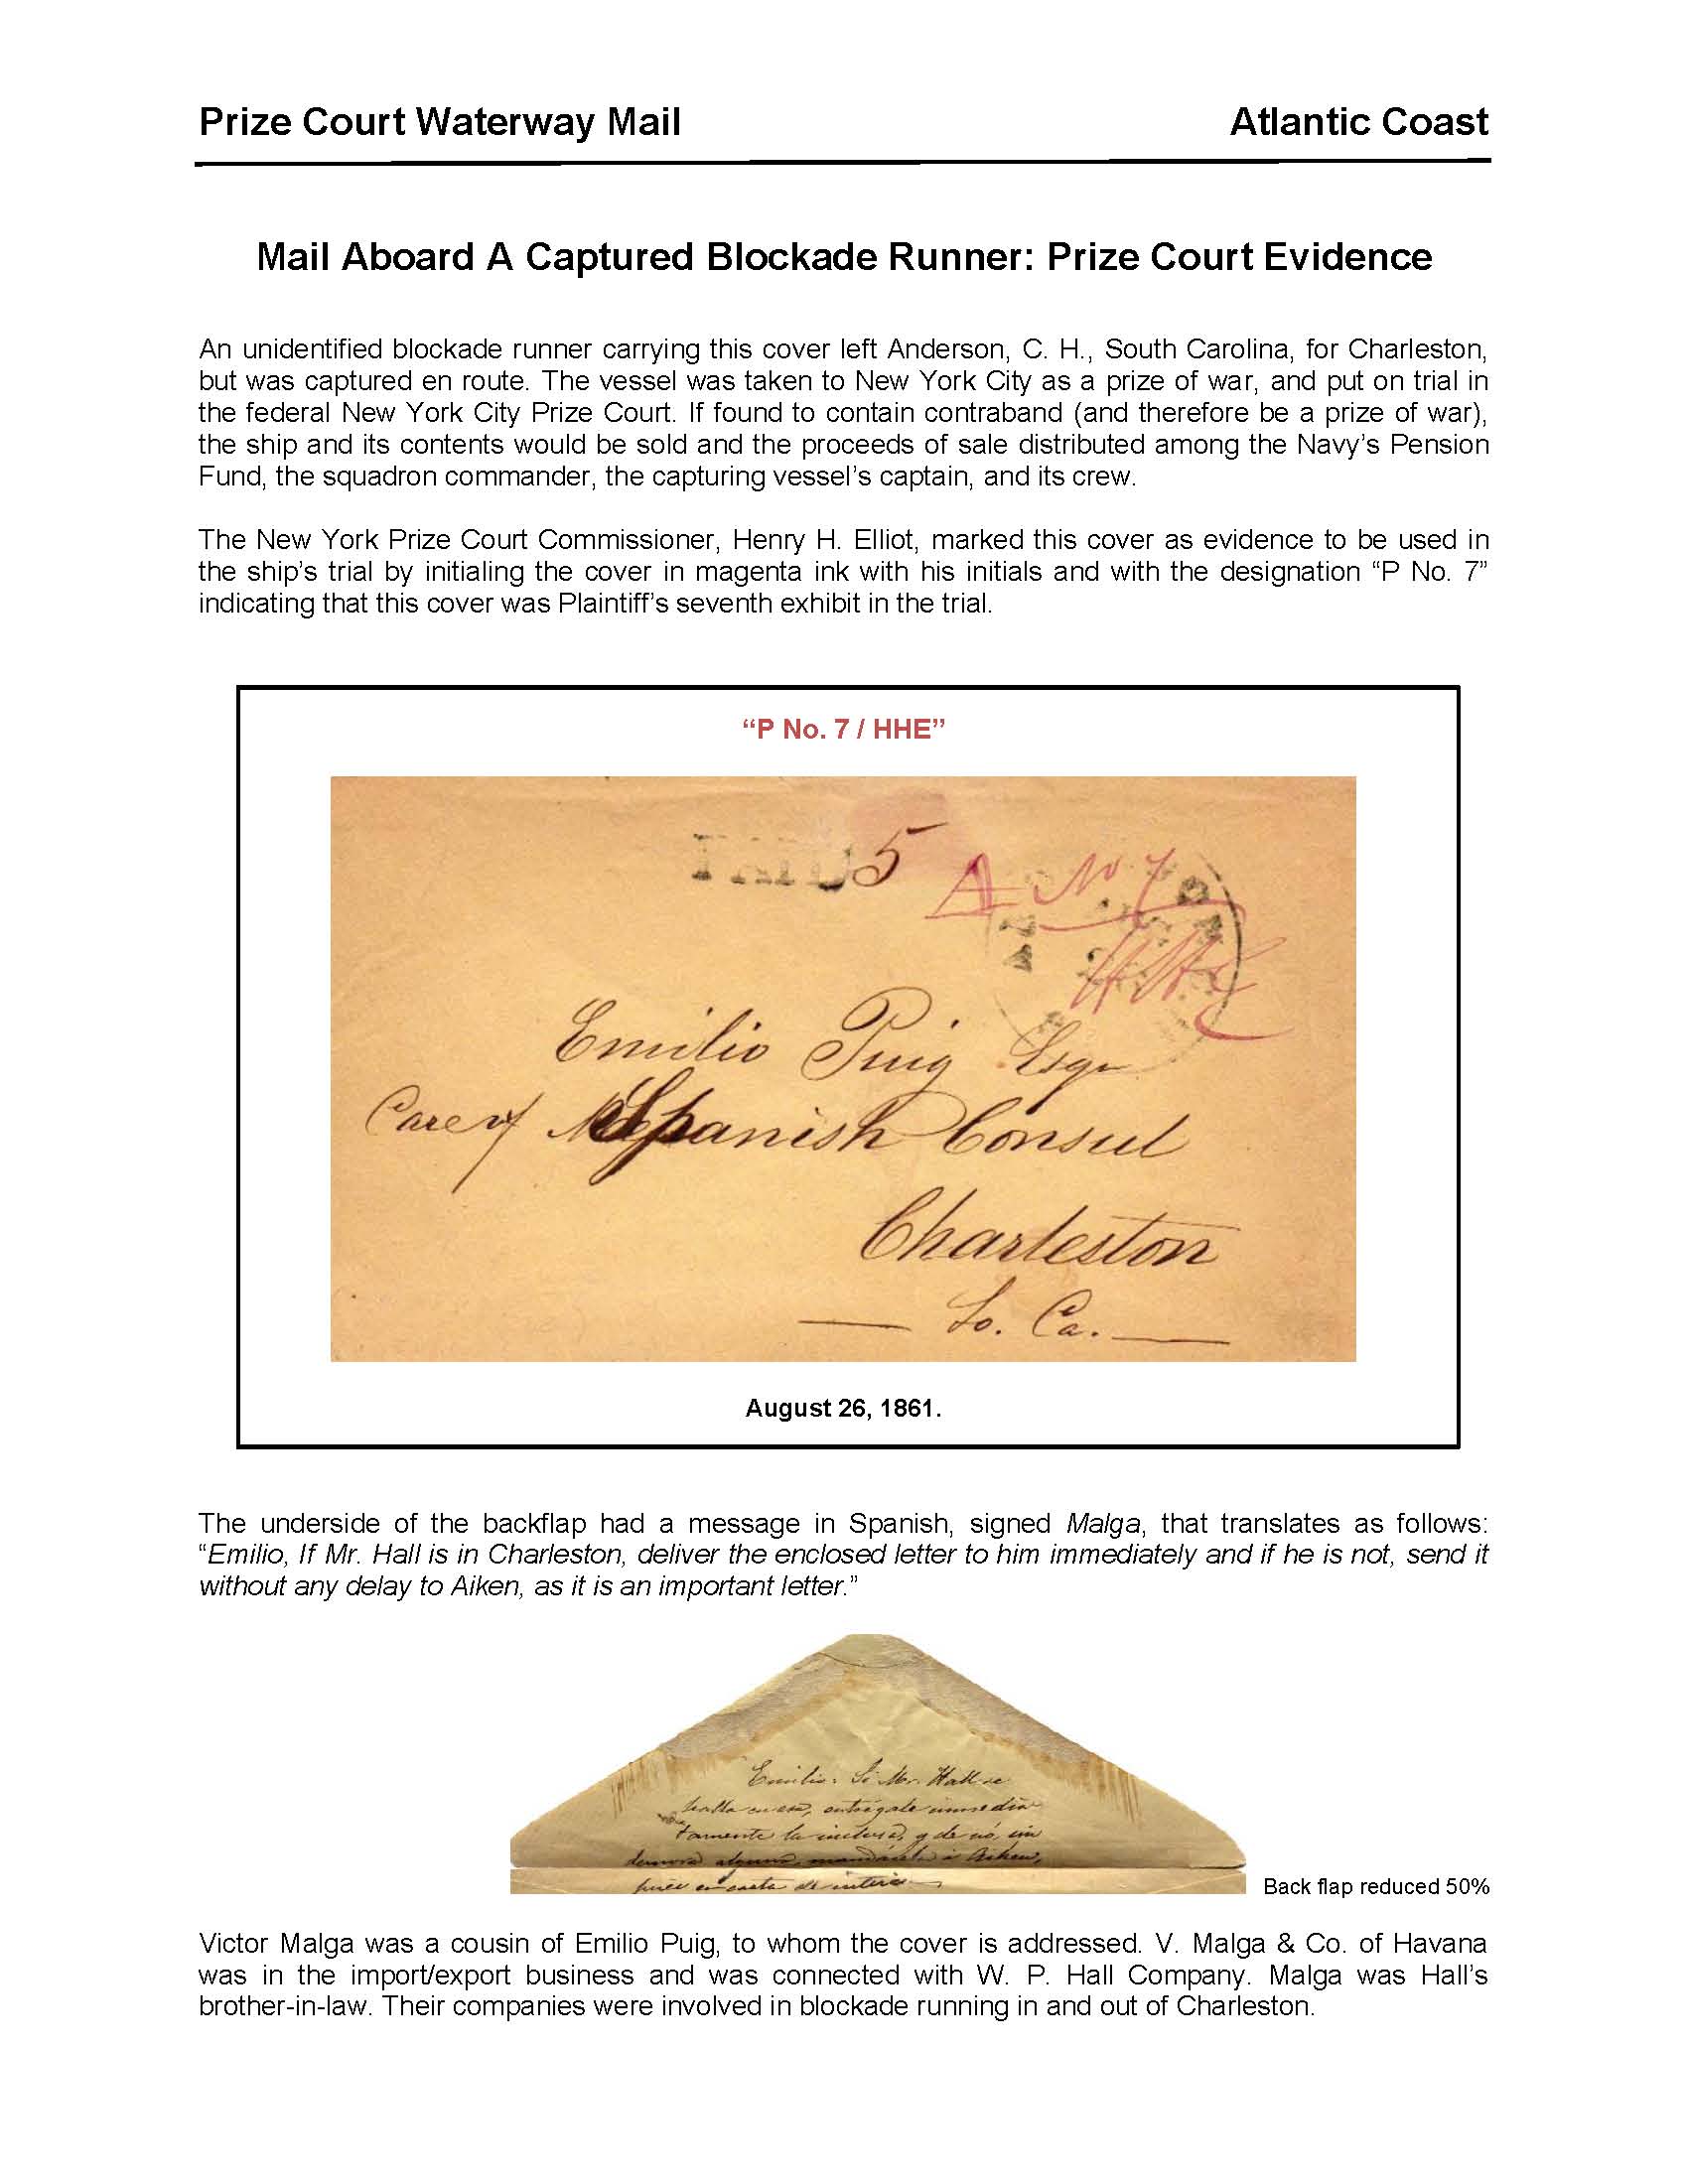 Prize Court Waterway Mail Atlantic Coast
Mail Aboard A Captured Blockade Runner: Prize Court Evidence
An unidentified blockade runner carrying this cover left Anderson, C. H., South Carolina, for Charleston,
but was captured en route. The vessel was taken to New York City as a prize of war, and put on trial in
the federal New York City Prize Court. If found to contain contraband (and therefore be a prize of war),
the ship and its contents would be sold and the proceeds of sale distributed among the Navy's Pension
Fund, the squadron commander, the capturing vessel's captain, and its crew.
The New York Prize Court Commissioner, Henry H. Elliot, marked this cover as evidence to be used in
the ship's trial by initialing the cover in magenta ink with his initials and with the designation “P No. 7”
indicating that this cover was Plaintiff's seventh exhibit in the trial.
“P No. 7 / HHE”
5
No. 7
HHE
Emilio Puig Esqr
Care of Spanish Consul
Charleston
So. Ca.
August 26, 1861.
The underside of the backflap had a message in Spanish, signed Malga, that translates as follows:
“Emilio, If Mr. Hall is in Charleston, deliver the enclosed letter to him immediately and if he is not, send it
without any delay to Aiken, as it is an important letter.”
Emilio: Si Mr. Hall se
halla en esa, entrégale immedia
tamente la inclusa, y de nó, sin
demora alguna, mandásela á Aiken,
pues es carta de interés
Back flap reduced 50%
Victor Malga was a cousin of Emilio Puig, to whom the cover is addressed. V. Malga & Co. of Havana
was in the import/export business and was connected with W. P. Hall Company. Malga was Hall's
brother-in-law. Their companies were involved in blockade running in and out of Charleston.